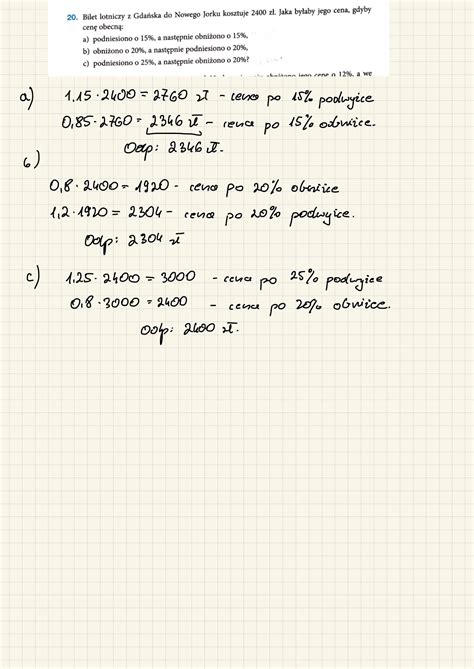 20. Bilet lotniczy z Gdańska do Nowego Jorku kosztuje 2400 zł. Jaka byłaby jego cena, gdyby
cenę obecną:
a) podniesiono o 15%, a następnie obniżono o 15%,
b) obniżono o 20%, a następnie podniesiono o 20%,
c) podniesiono o 25%, a następnie obniżono o 20%?
obniżono jego cenę o 12%, a we
a) 1,15 · 2400 = 2760 zł - cena po 15% podwyżce
0,85 · 2760 = 2346 zł - cena po 15% obniżce.
Odp: 2346 zł.
b)
0,8 · 2400 = 1920 - cena po 20% obniżce
1,2 · 1920 = 2304 - cena po 20% podwyżce.
Odp: 2304 zł
c) 1,25 · 2400 = 3000 - cena po 25% podwyżce
0,8 · 3000 = 2400 - cena po 20% obniżce.
Odp: 2400 zł.